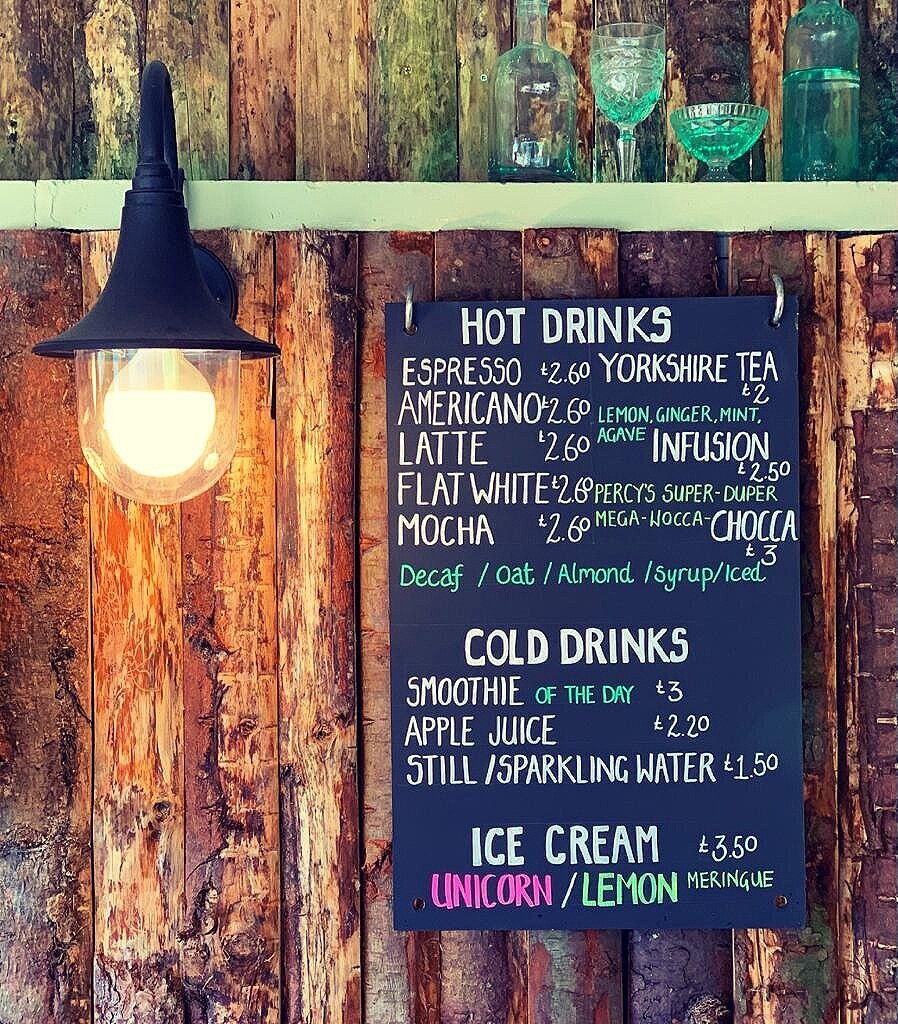 HOT DRINKS
ESPRESSO £2.60
AMERICANO £2.60
LATTE £2.60
FLAT WHITE £2.60
MOCHA £2.60
YORKSHIRE TEA
£2
LEMON, GINGER, MINT,
AGAVE INFUSION
£2.50
PERCY'S SUPER-DUPER
MEGA-WOCCA-CHOCCA
£3
Decaf / Oat / Almond / Syrup/Iced
COLD DRINKS
SMOOTHIE OF THE DAY £3
APPLE JUICE £2.20
STILL /SPARKLING WATER £1.50
ICE CREAM £3.50
UNICORN / LEMON MERINGUE